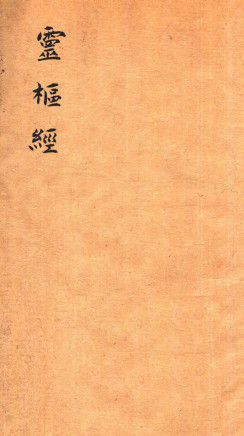 靈樞經